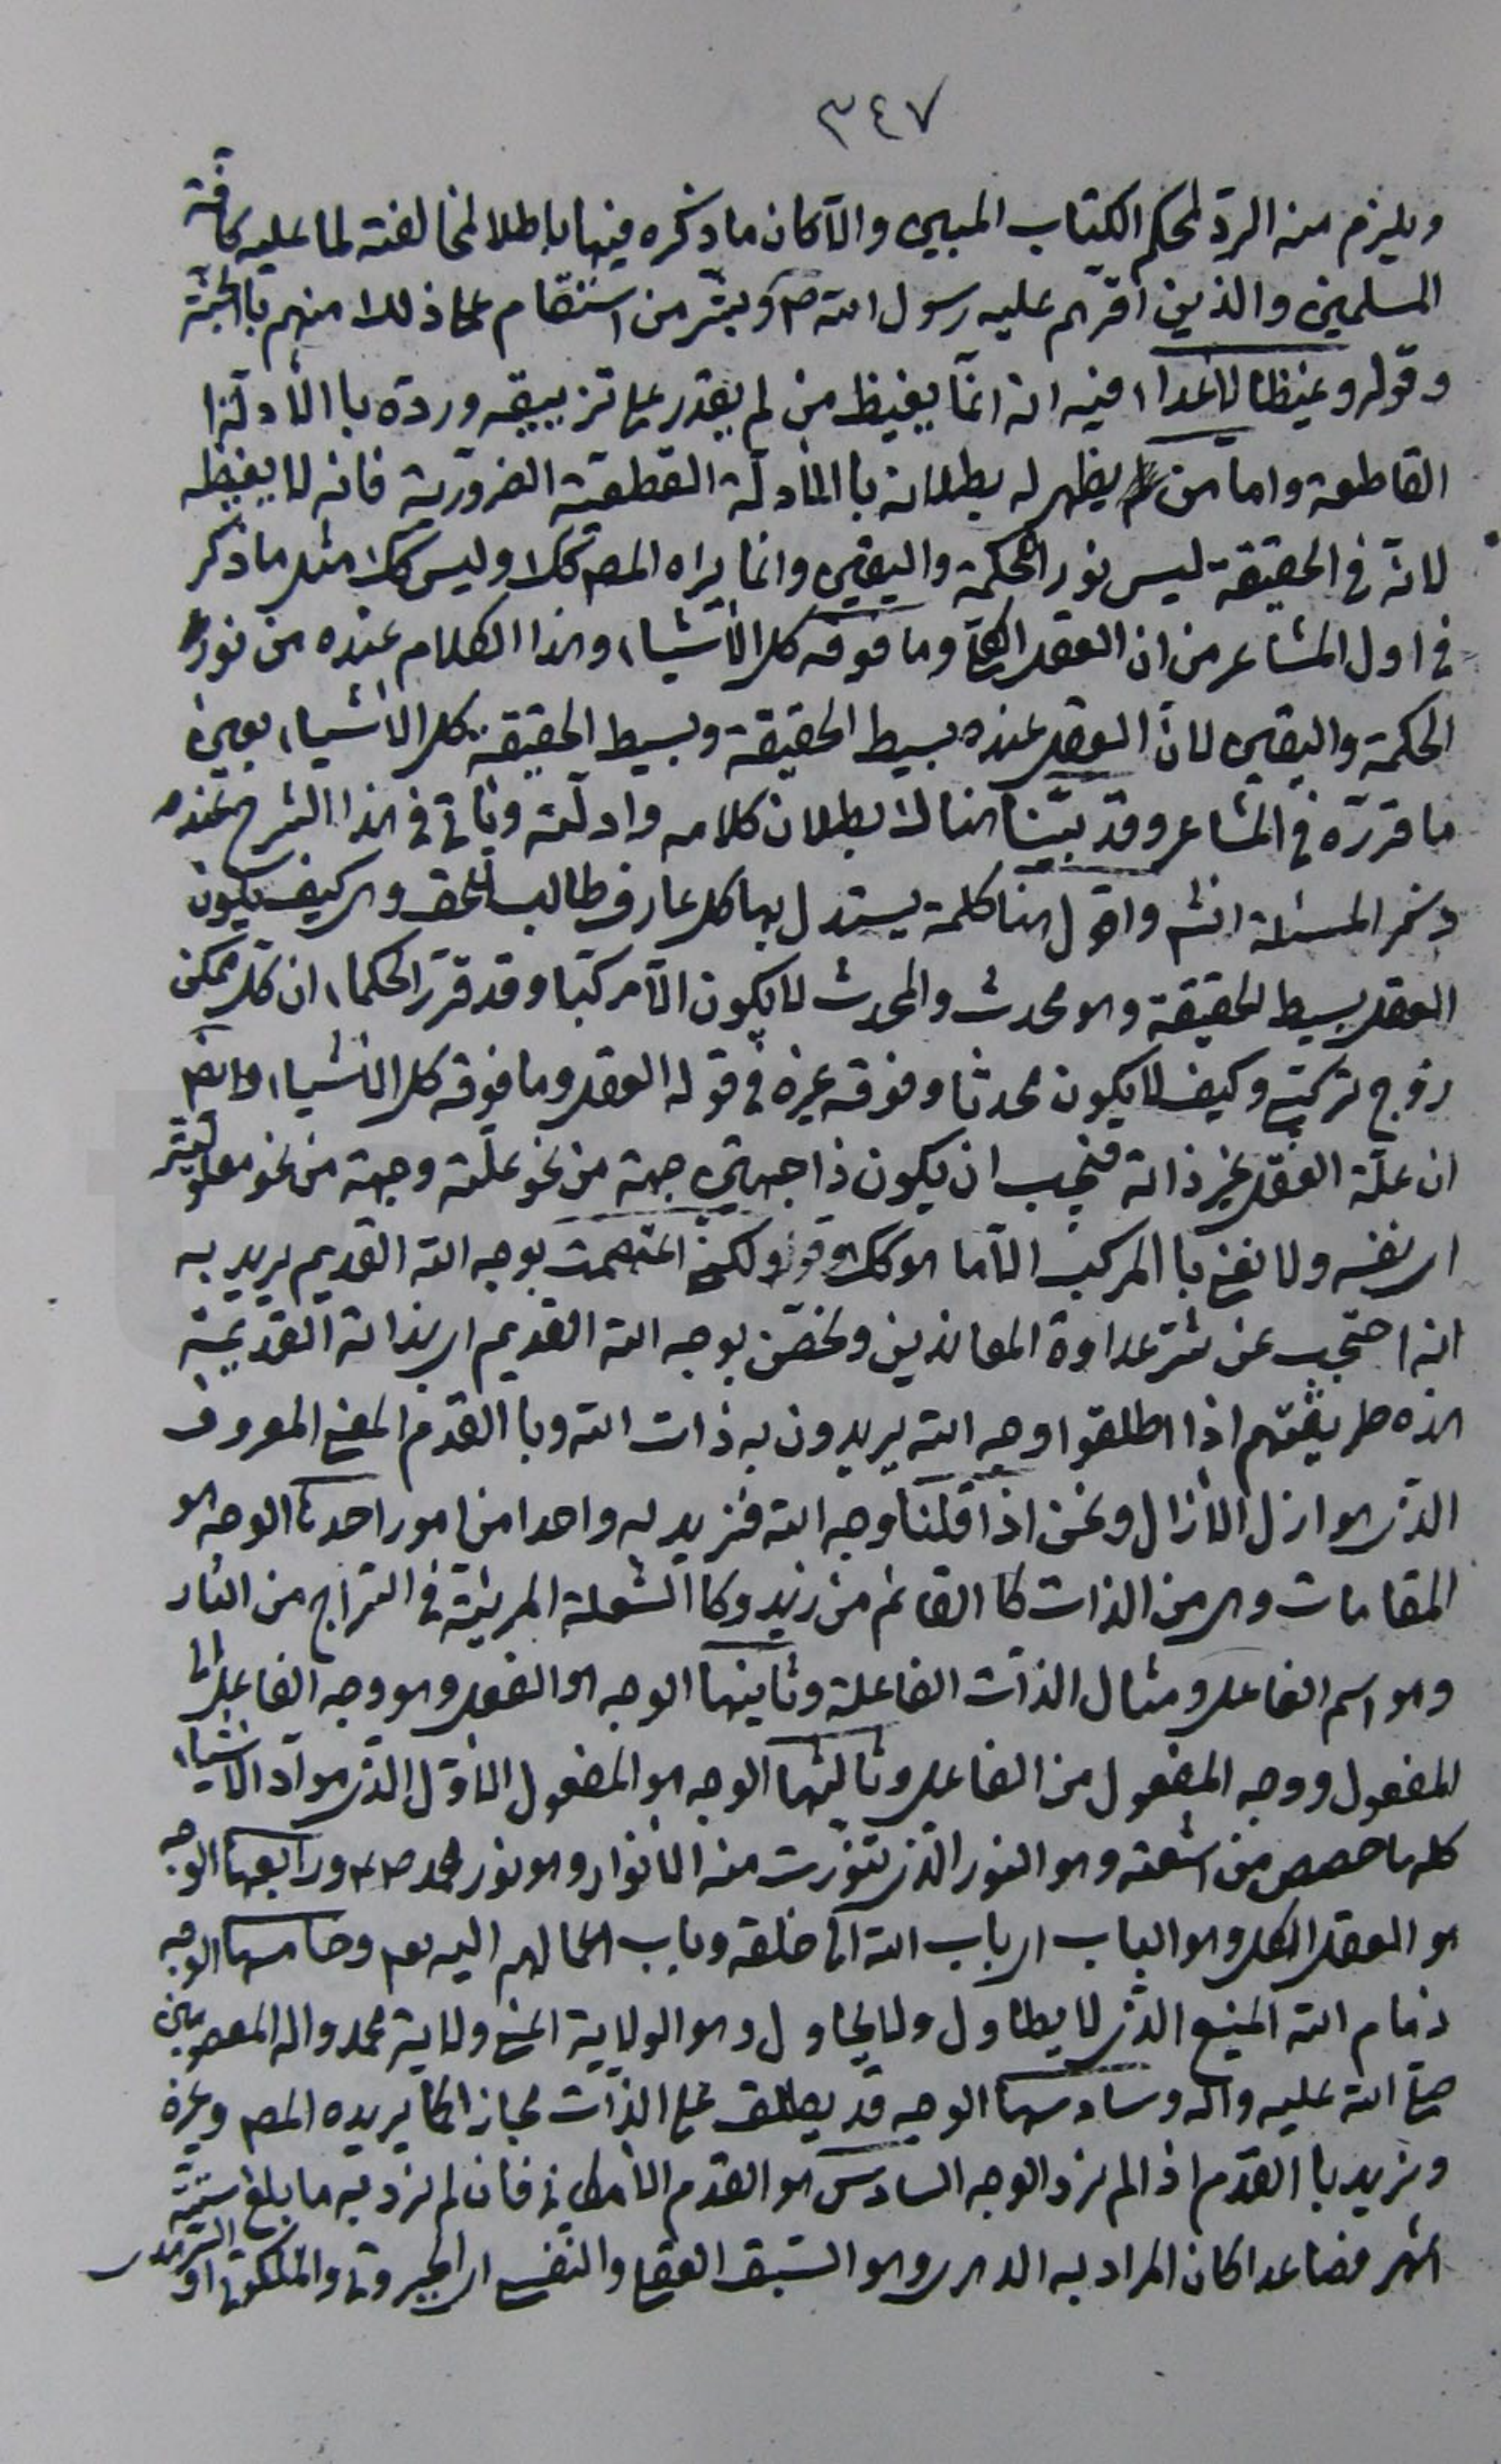 ٣٤٧
ويلزم منه الردّ لمحكم الكتاب المبين والّا كان ما ذكره فيها باطلا لمخالفته لما عليه كافّة
المسلمين والذين اقرّهم عليه رسول الله ص وبشّر من استقام على ذلك منهم بالجنّة
وقوله وغيظا للاعداء فيه انه انّما يغيظ من لم يقدر على تزييفه وردّه باالأدلّة
القاطعة واما من يظهر له بطلانه باالأدلّة القطعيّة الضروريّة فانه لا يغيظه
لانّه فى الحقيقة ليس نور الحكمة واليقين وانما يراه المصه كك وليس كك مثل ما ذكر
فى اول المشاعر من ان العقل وما فوقه كل الأشياء وهذا الكلام عنده من نور
الحكمة واليقين لانّ العقل عنده بسيط الحقيقة وبسيط الحقيقة كل الأشياء يعين
ما قرّره فى المشاعر وقد بيّنّا هناك بطلان كلامه وادلّته ويأتى فى هذا الشرح عنده
ذكر المسئلة انشه واقول هنا كلمة يستدل بها كل عارف طالب للحق وهى كيف يكون
العقل بسيط الحقيقة وهو محدث والمحدث لا يكون الّا مركّبا وقد قرّر الحكماء ان كل ممكن
زوج تركيبى وكيف لا يكون محدثا وفوقه غيره فى قوله العقل وما فوقه كل الأشياء وايضا
ان علّة العقل غير ذاته فيجب ان يكون ذا جهتين جهة من نحو علّته وجهة من نحو معلوليّته
اى نفسه ولا نعنى باالمركب الّا ما هو كك وقوله ولكنى اعتصمت بوجه الله القديم يريد به
انه احتجب عن شرّ عداوة المعاندين وتحصّن بوجه الله القديم اى بذاته القديمة
هذه طريقتهم اذا اطلقوا وجه الله يريدون به ذات الله وباالقدم المعنى المعروف
الذى هو ازل الأزال ونحن اذا قلنا وجه الله فنريد به واحدا من امور احدها الوجه هو
المقامات وهى من الذات كاالقائم من زيد وكاالشعلة المرئيّة فى السّراج من النار
وهو اسم الفاعل ومثال الذات الفاعلة وثانيها الوجه هو الفعل وهو وجه الفاعل الى
المفعول ووجه المفعول من الفاعل وثالثها الوجه هو المفعول الأوّل الذى مواد الأشياء
كلها حصص من اشعته وهو النور الذى تنوّرت منه الأنوار وهو نور محمد ص ورابعها الوجه
هو العقل الكل وهو الباب اى باب الله الى خلقه وباب اعمالهم اليه تع وخامسها الوجه
ذمام الله المنيع الذى لا يطاول ولا يحاول وهو الولاية اعنى ولاية محمد واله المعصومين
صلى الله عليه واله وسادسها الوجه قد يطلق على الذات مجازا كما يريده المصه وغيره
ونريد باالقدم اذا لم نرد الوجه السادس هو القدم الأمكانى فان لم نرد به ما بلغ ستّة
اشهر فصاعدا كان المراد به الدهرى وهو السّبق العقلى والنفسى اى الجبروتى والملكوتى او السّرمدى